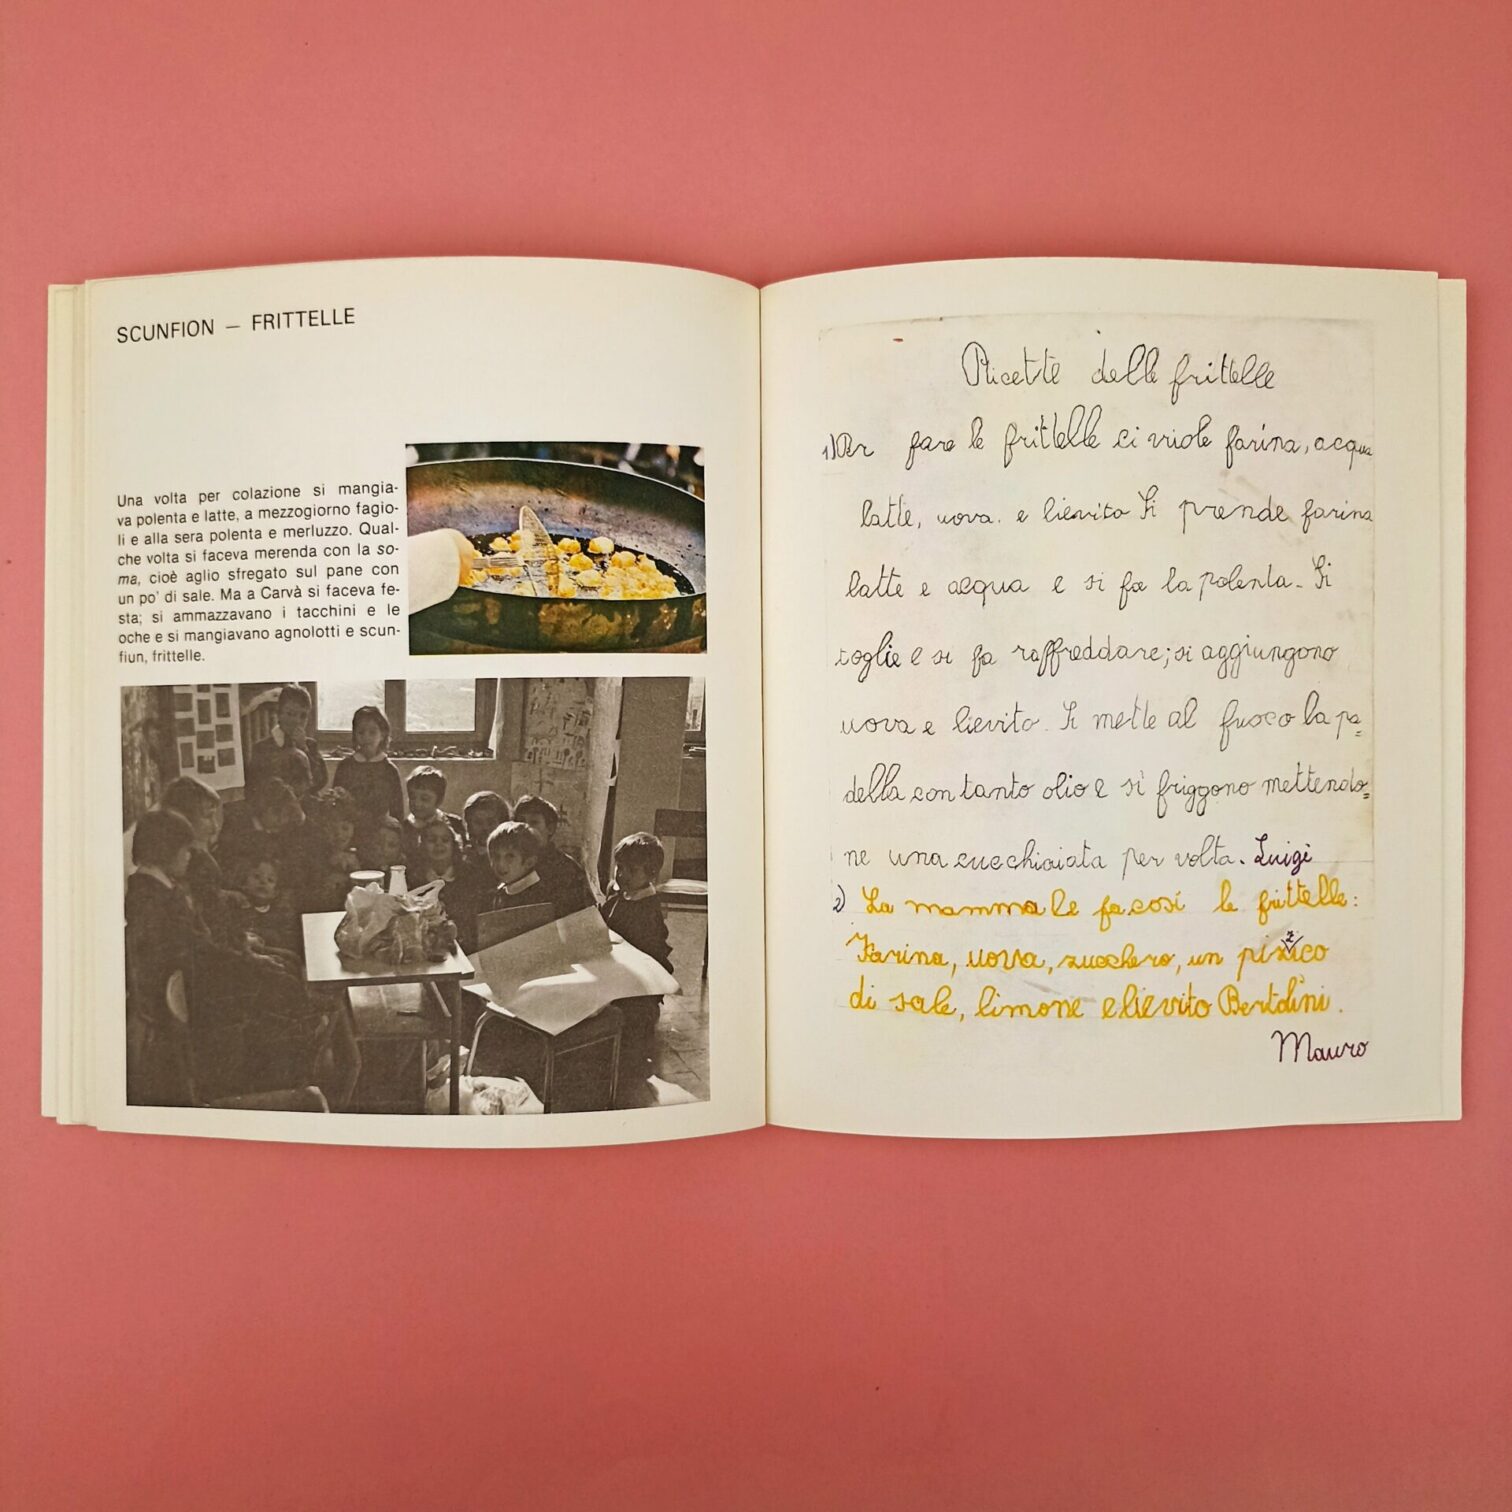 SCUNFION — FRITTELLE
Una volta per colazione si mangia-
va polenta e latte, a mezzogiorno fagio-
li e alla sera polenta e merluzzo. Qual-
che volta si faceva merenda con la so-
ma, cioè aglio sfregato sul pane con
un po' di sale. Ma a Carvà si faceva fe-
sta; si ammazzavano i tacchini e le
oche e si mangiavano agnolotti e scun-
fiun, frittelle.
Ricette delle frittelle
1) Per fare le frittelle ci vuole farina, acqua
latte, uova. e lievito Si prende farina
latte e acqua e si fa la polenta. Si
toglie e si fa raffreddare; si aggiungono
uova e lievito. Si mette al fuoco la pa=
della con tanto olio e si friggono mettendo=
ne una cucchiaiata per volta. Luigi
2) La mamma le fa così le frittelle:
Farina, uova, zucchero, un pizzico
di sale, limone e lievito Bertolini.
Mauro